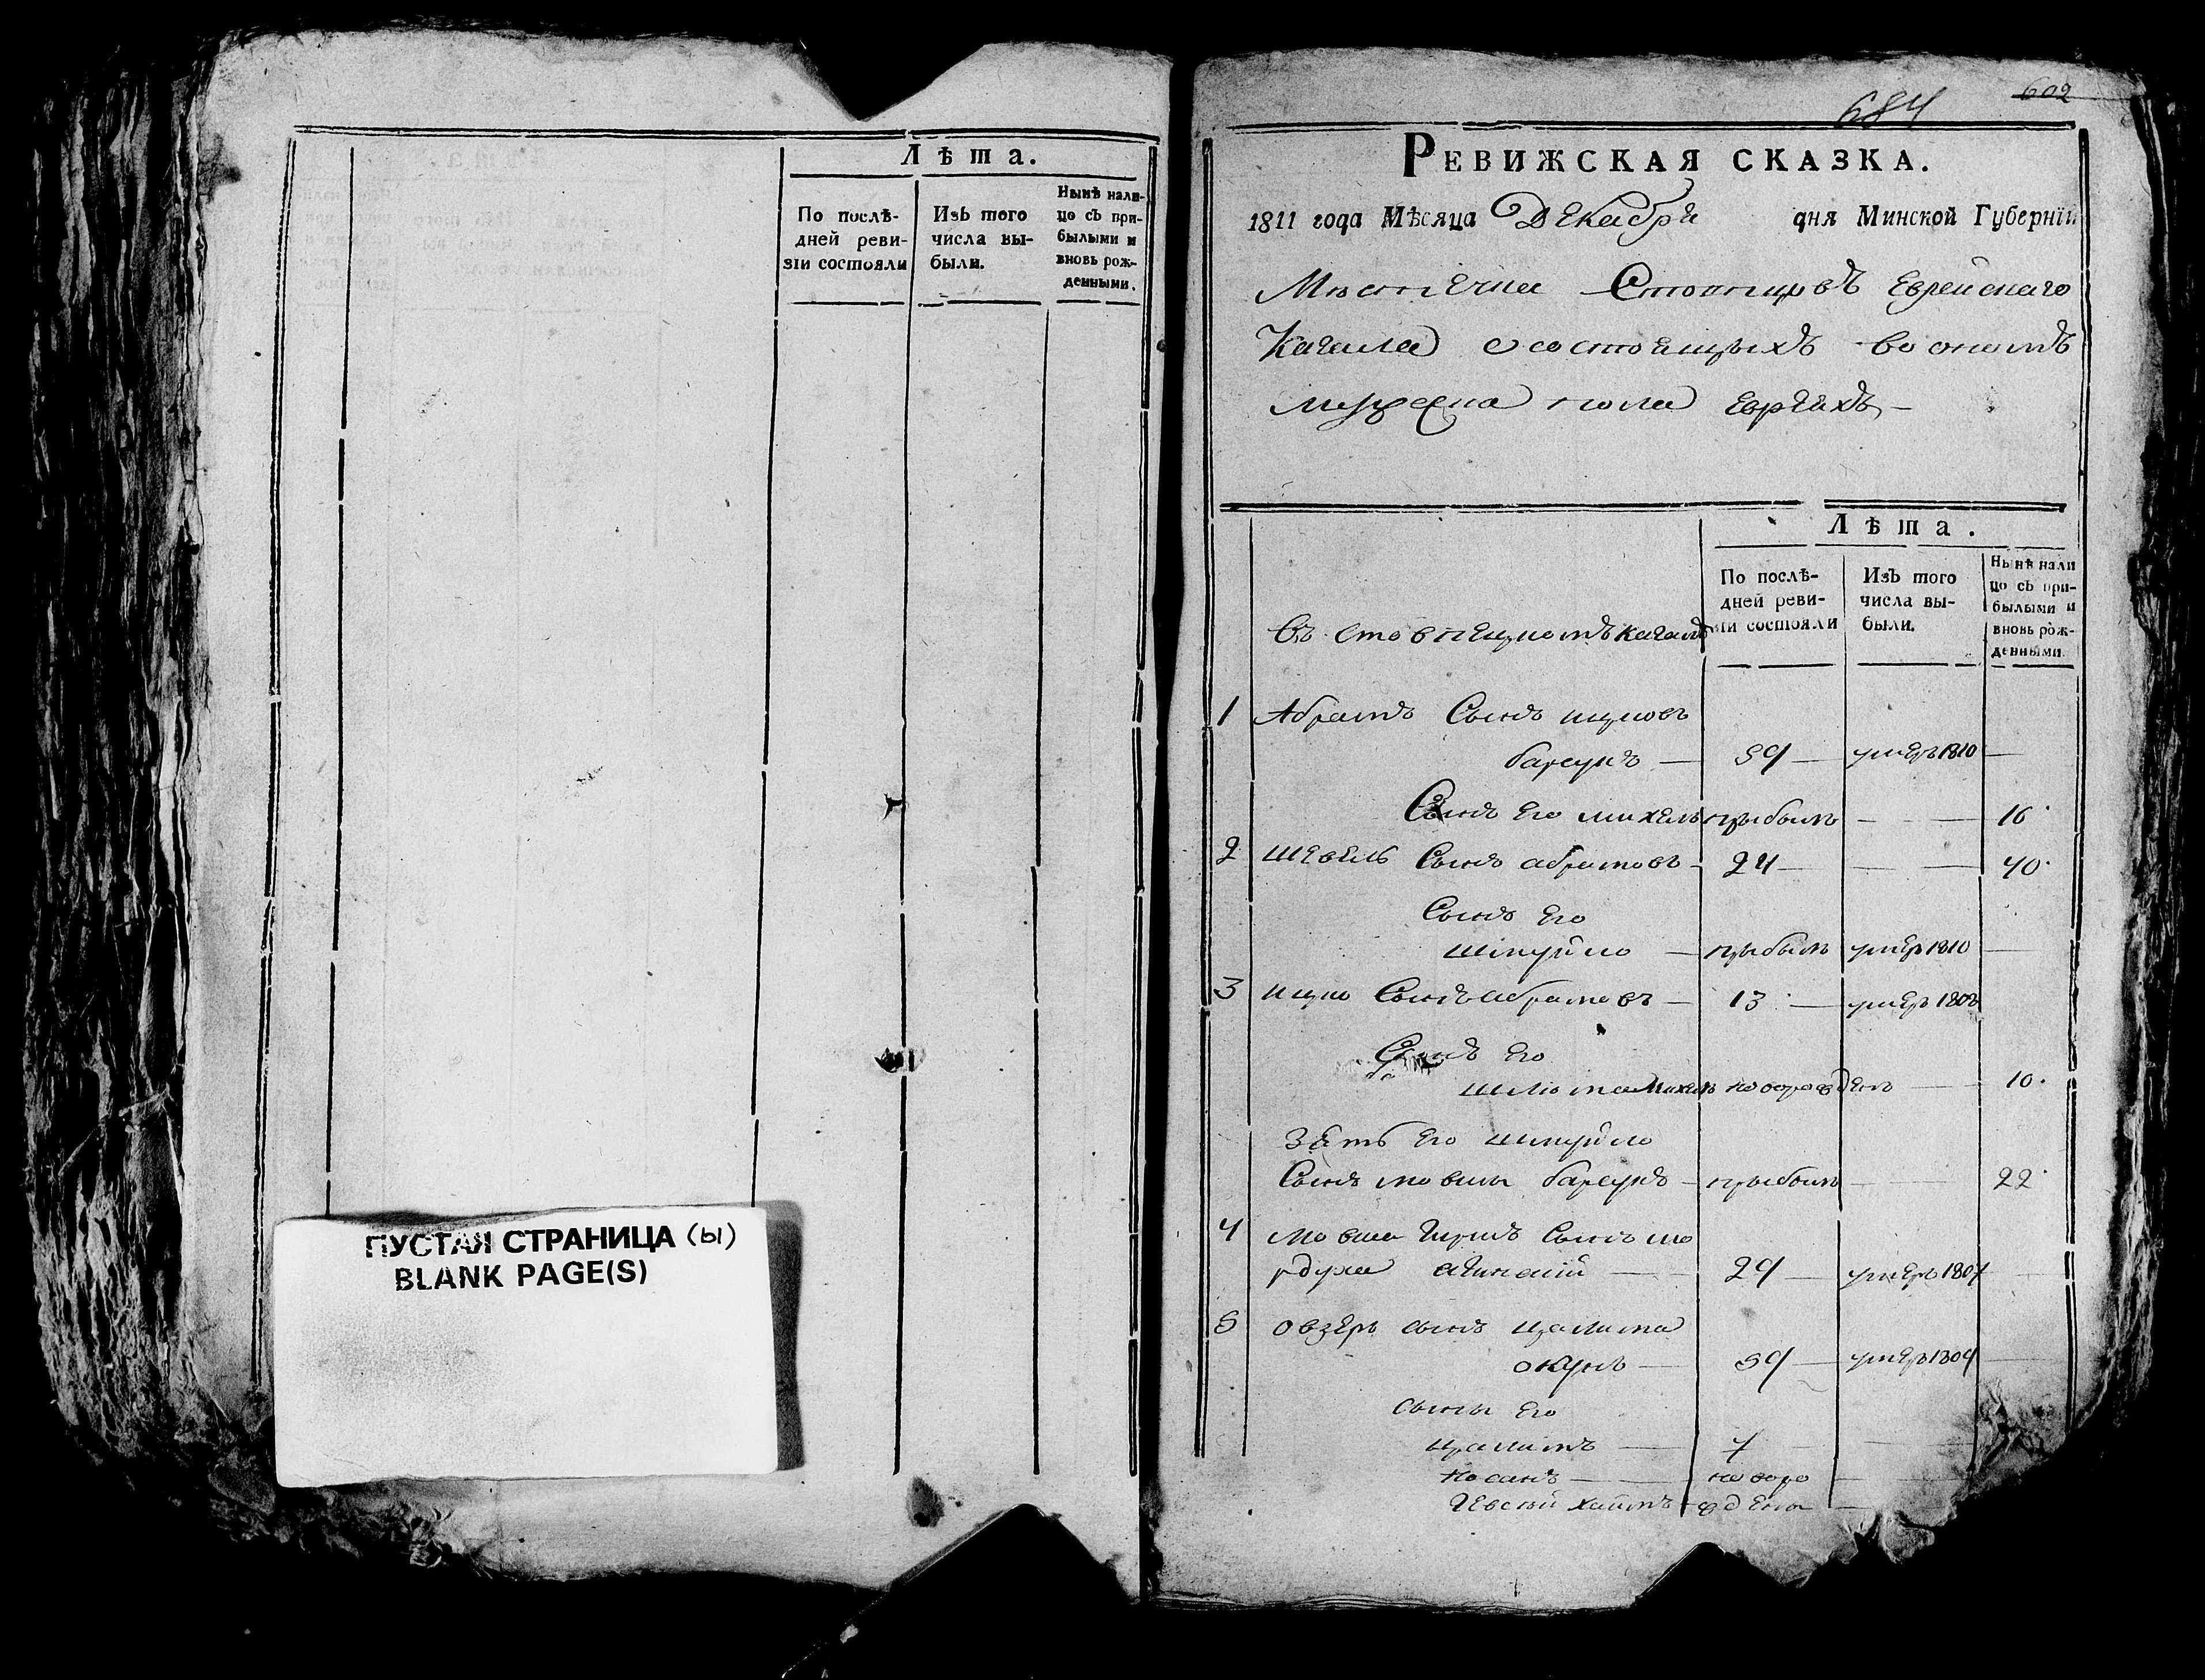 Лѣта.
По послѣ-
дней реви-
зіи состояли
Изъ того
числа вы-
были.
Нынѣ нали-
цо съ при-
былыми и
вновь рож-
денными.
ПУСТАЯ СТРАНИЦА (ы)
BLANK PAGE(S)
602
684
РЕВИЖСКАЯ СКАЗКА.
1811 года Мѣсяца Декабря дня Минской Губерніи
Местечка Еврейскаго
Кагала о состоящихъ во ономъ
мужеска пола евреяхъ
Лѣта.
По послѣ-
дней реви-
зіи состояли
Изъ того
числа вы-
были.
Нынѣ нали
цо съ при-
былыми и
вновь рож-
денными.
Въ кагалѣ
1 Абрамъ Сынъ ицковъ
59 умеръ 1810
Сынъ его михель прыбылъ 16
2 шевель Сынъ абрамовъ 24 40
Сынъ его
шмуйло прыбылъ умеръ 1810
3 ицко Сынъ абрамовъ 13 умеръ
Сынъ его
новорожденъ 10
Зять его шмуйло
Сынъ мовши прыбылъ 22
4 мовша гиршъ Сынъ мо
рдуха 29 умеръ 1807
5 овзеръ сынъ
окунь 59 умеръ 1804
сыны его
7
носанъ новоро
хаимъ ждены